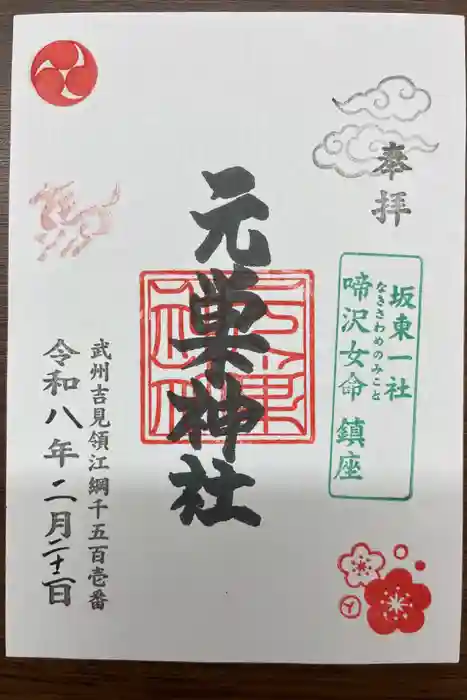 奉拝
坂東一社
なきさわめのみこと
啼沢女命 鎮座
元巣神社
武州吉見領江綱千五百壱番
令和八年二月二十二日